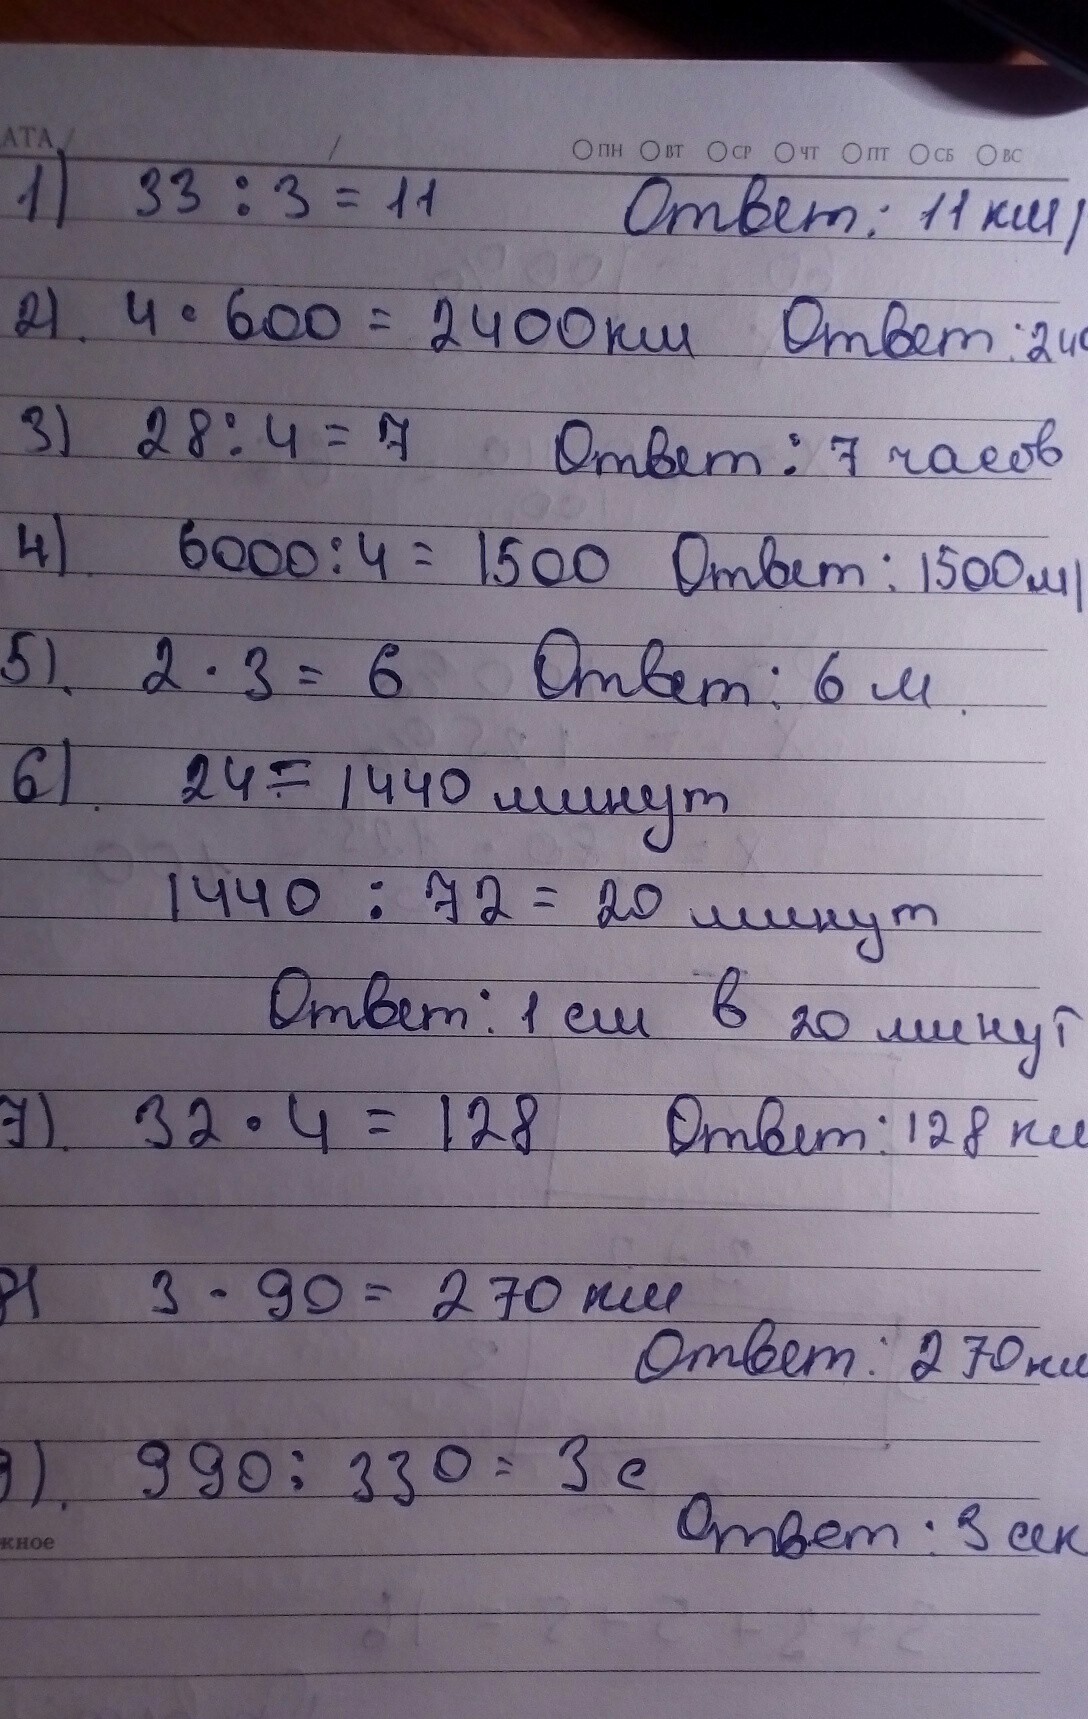 АТА / /
ПН ВТ СР ЧТ ПТ СБ ВС
1) 33 : 3 = 11 Ответ: 11 км/
2). 4 · 600 = 2400 км Ответ: 240
3) 28 : 4 = 7 Ответ: 7 часов
4) 6000 : 4 = 1500 Ответ: 1500 м/
5). 2 · 3 = 6 Ответ: 6 м.
6). 24 = 1440 минут
1440 : 72 = 20 минут
Ответ: 1 см в 20 минут
7). 32 · 4 = 128 Ответ: 128 км
8) 3 · 90 = 270 км
Ответ: 270 км
9). 990 : 330 = 3 с
Ответ: 3 сек
жное